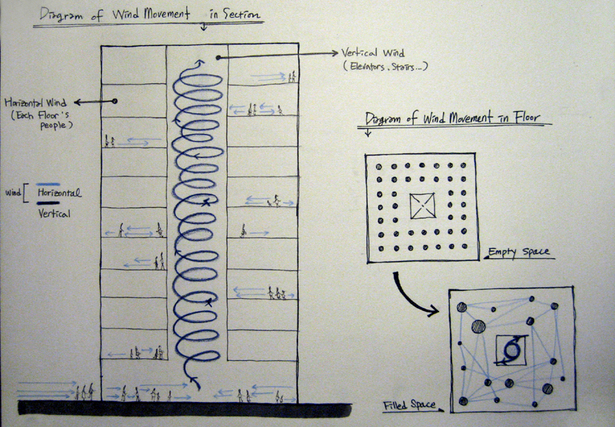 Diagram of Wind Movement in Section
Vertical Wind
(Elevators, Stairs...)
Horizontal Wind
(Each Floor's
people)
Wind
Horizontal
Vertical
Diagram of Wind Movement in Floor
Empty Space
Filled Space